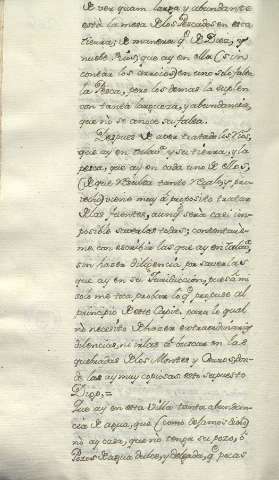 de ver quam larga y abundante
está la mesa de los Pescados en esta
tierra; de manera q. de Diez, y
nuebe Rios, que ay en ella (sin
contar los arroios) en uno solo falta
la Pesca, pero los demas la suplen
con tanta largueza, y abundancia,
que no se conoce su falta.
Despues de aver tratado los Rios,
que ay en y su tierra, y la
pesca, que ay en cada uno de ellos,
(de que resulta tanto regalo, y pro
vecho) viene muy a proposito tratar
de las fuentes, aunq. seria casi im
posible saverlas todas; contentaré
me con escribir las que ay en
sin hacer diligencia por saver las
que ay en su Jurisdiccion, pues á mi
solo me toca probar lo q. propuse al
principio de este Capit. para lo qual
no necesito de hacer extraordinarias
diligencias, ni irlas á buscar en las
quebradas de los Montes, y Cerros, don
de las ay muy copiosas: esto supuesto
Digo, =
Que ay en esta Villa tanta abundan
cia de agua, que (como dejamos dicho)
no ay casa, que no tenga su pozo, ó
Pozos de agua dulce, y delgada, q. pocas